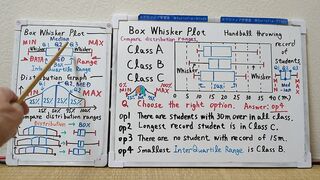 Box Whisker Plot
Median
MIN Q1 Q2 Q3 MAX
Whisker Whisker
DATA Range
InterQuartile Range
Distribution Graph
Q1 Q2 Q3
MIN MAX
25% 25% 25% 25%
Compare distribution ranges
Distribution → BOX
Box Whisker Plot Handball throwing
Compare distribution ranges.
record of students
Class A
Class B
Class C
Whisker Whisker
MIN Q1 Q2 Q3 MAX
25% 25%
40 (m)
Q Choose the right option. Answer: op4
op1 There are students with 30m over in all class.
op2 Longest record student is in Class C.
op3 There are no student with record of 15m.
op4 Smallest InterQuartile Range is Class B.